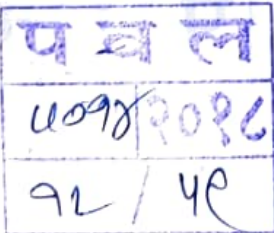 प व ल
५०१४ २०१८
१२ / ५९